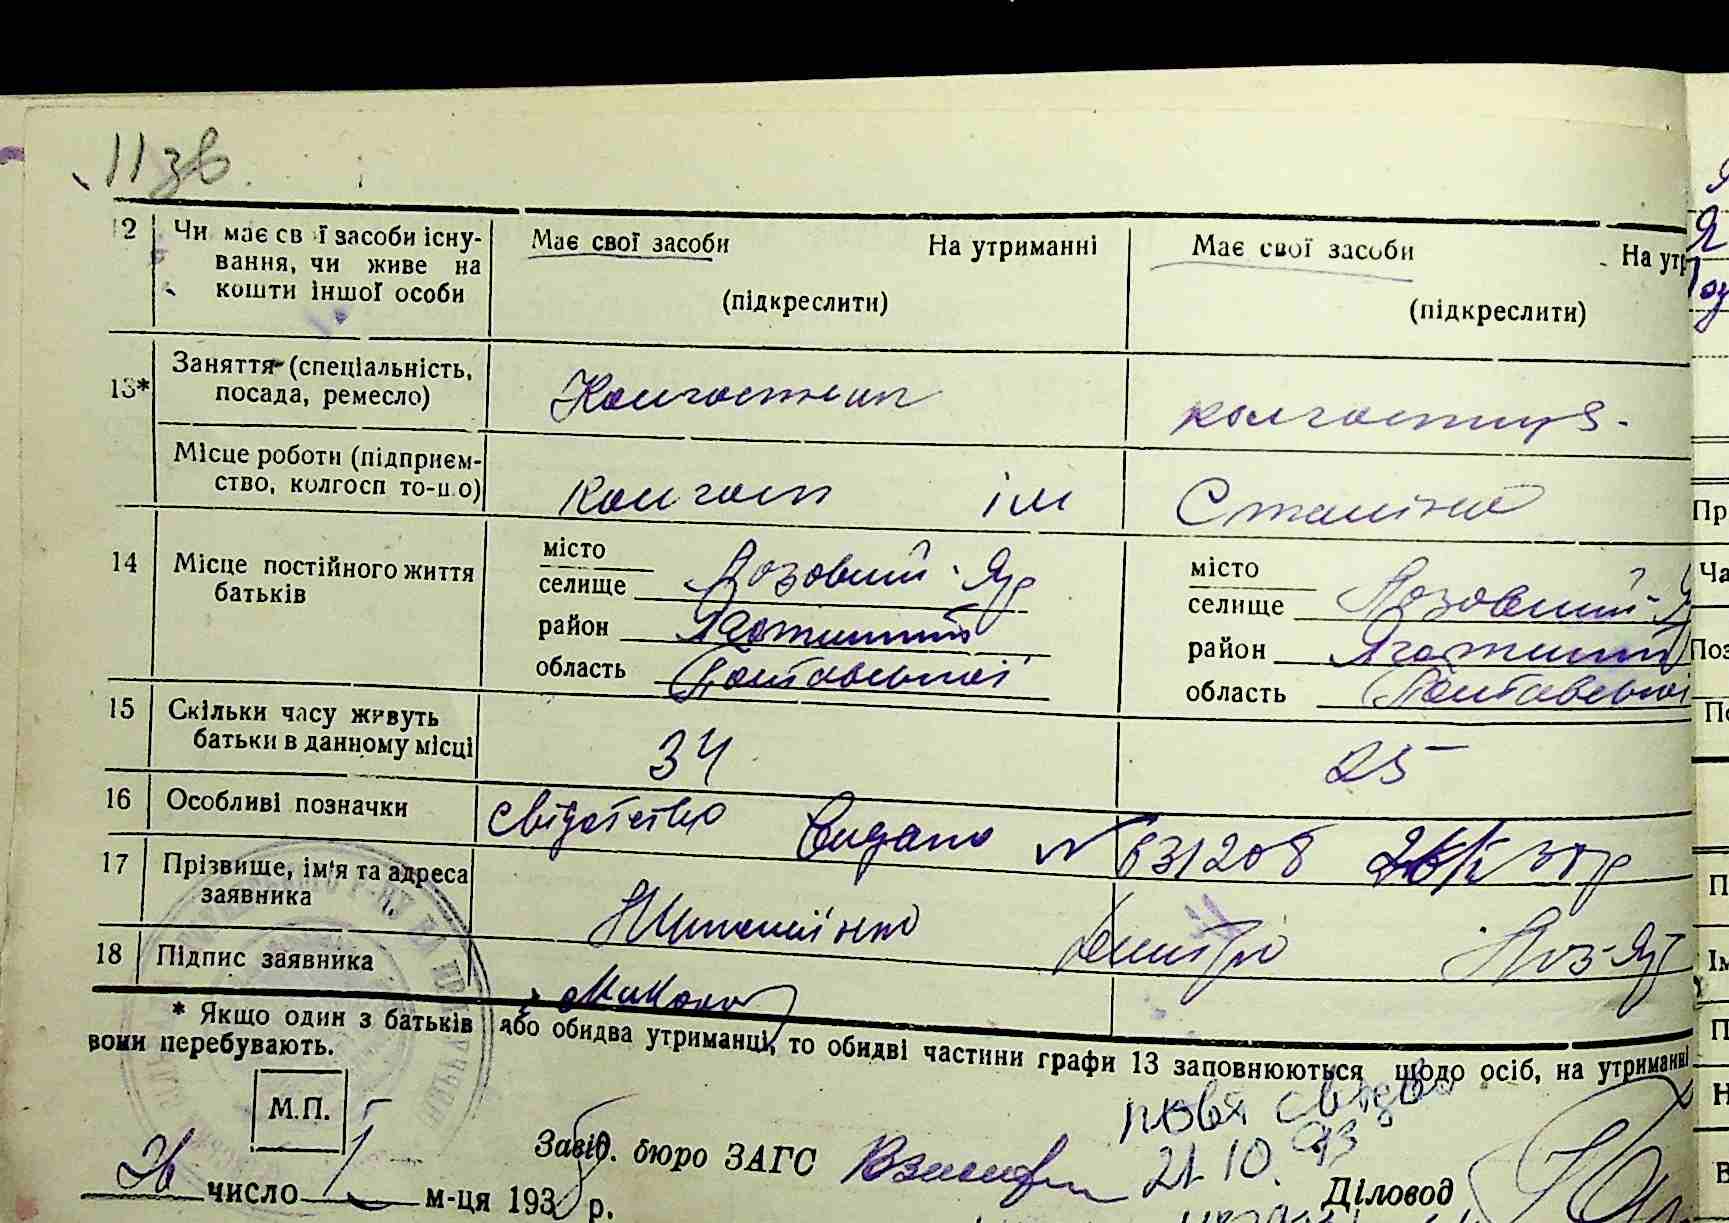 11 зв.
12 Чи має свої засоби існу- Має свої засоби На утриманні Має свої засоби На утр
вання, чи живе на
кошти іншої особи (підкреслити) (підкреслити)
13* Заняття (спеціальність,
посада, ремесло) Колгоспник колгоспниця
Місце роботи (підприєм-
ство, колгосп то-що) колгосп ім Сталіна
14 Місце постійного життя
батьків
місто місто
селище Лозовий-Яр селище Лозовий-Я
район Яготинський район Яготинський
область Полтавської область Полтавської
15 Скільки часу живуть
батьки в данному місці 34 25
16 Особливі позначки свідотство видано № 631208
17 Прізвище, ім'я та адреса
заявника Дмитро Лоз-Яр
18 Підпис заявника
* Якщо один з батьків або обидва утриманці, то обидві частини графи 13 заповнюються щодо осіб, на утриманні
вони перебувають.
М.П.
21.10.93
Завід. бюро ЗАГС Діловод
26 число м-ця 1938 р.